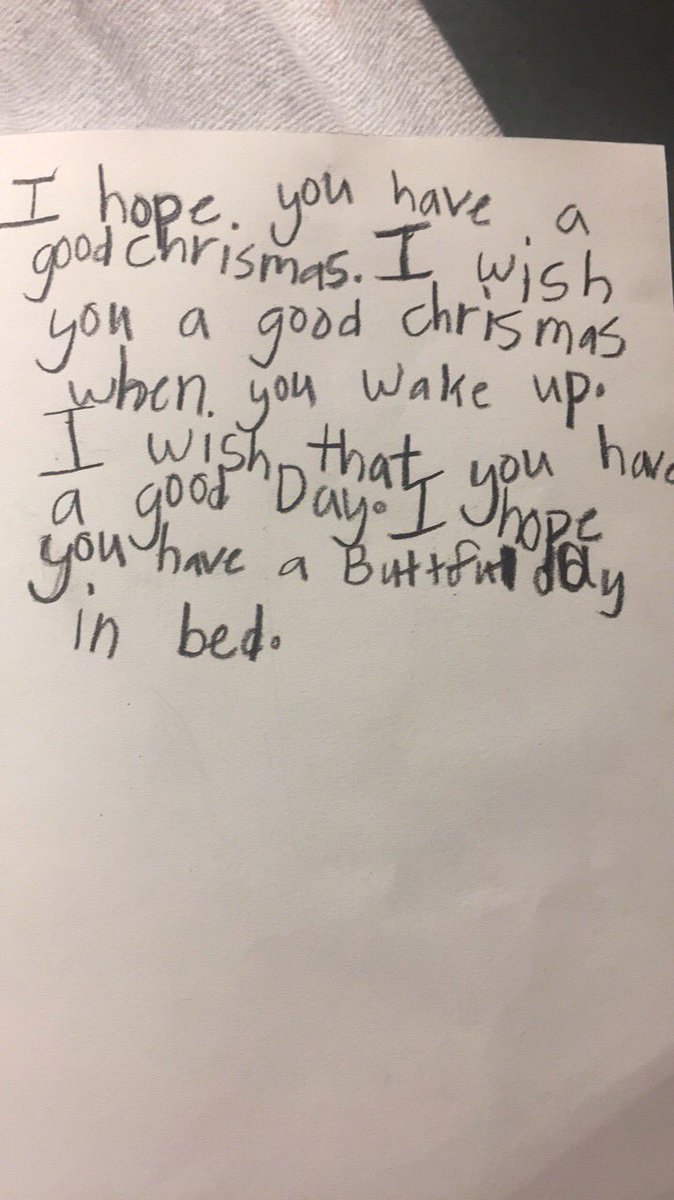 I hope. you have a
good chrismas. I wish
you a good chrismas
when. you wake up.
I wish that you have
a good Day. I hope
you have a Buttful day
in bed.